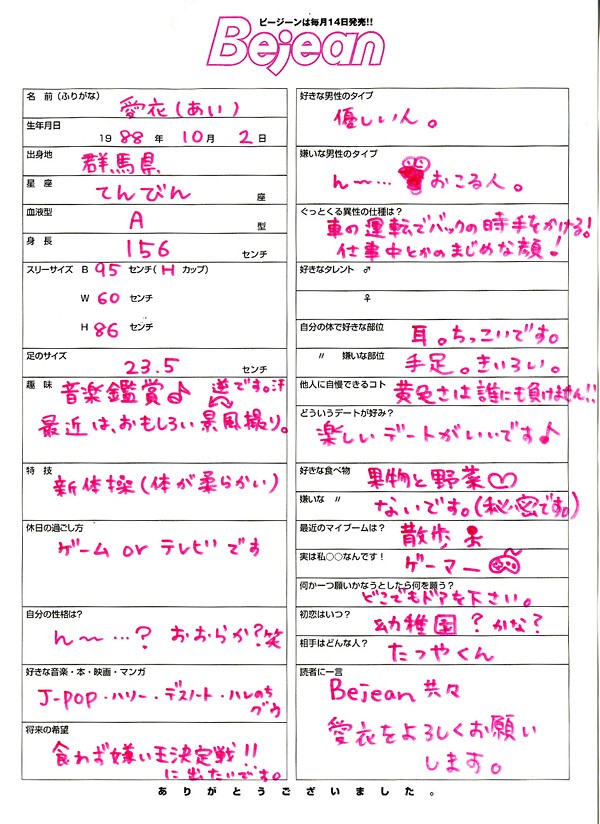 ビージーンは毎月14日発売!!
Bejean
名 前 (ふりがな)
愛衣(あい)
生年月日
1988年 10月 2日
出身地
群馬県
星 座
てんびん 座
血液型
A 型
身 長
156 センチ
スリーサイズ B 95 センチ(H カップ)
W 60 センチ
H 86 センチ
足のサイズ
23.5 センチ
趣 味 音楽鑑賞♪ 逆です。汗
最近は、おもしろい景風撮り。
特 技
新体操(体が柔らかい)
休日の過ごし方
ゲーム or テレビです
自分の性格は?
ん〜…? おおらか?笑
好きな音楽・本・映画・マンガ
J-POP・ハリー・デスノート・ハレのち
グウ
将来の希望
食わず嫌い王決定戦!!
に出たいです。
好きな男性のタイプ
優しい人。
嫌いな男性のタイプ
ん〜… おこる人。
ぐっとくる異性の仕種は?
車の運転でバックの時手をかける!
仕事中とかのまじめな顔!
好きなタレント ♂
♀
自分の体で好きな部位
耳。ちっこいです。
〃 嫌いな部位
手足。きいろい。
他人に自慢できるコト 黄色さは誰にも負けません!!
どういうデートが好み?
楽しいデートがいいです♪
好きな食べ物
果物と野菜♡
嫌いな 〃
ないです。(秘密です。)
最近のマイブームは? 散歩
実は私○○なんです!
ゲーマー
何か一つ願いかなうとしたら何を願う?
どこでもドアを下さい。
初恋はいつ? 幼稚園?かな?
相手はどんな人? たつやくん
読者に一言
Bejean共々
愛衣をよろしくお願い
します。
ありがとうございました。